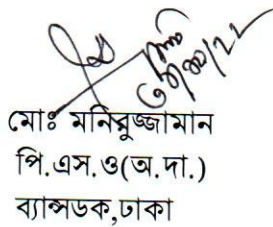 মোঃ মনিরুজ্জামান
পি.এস.ও(অ.দা.)
ব্যান্সডক,ঢাকা